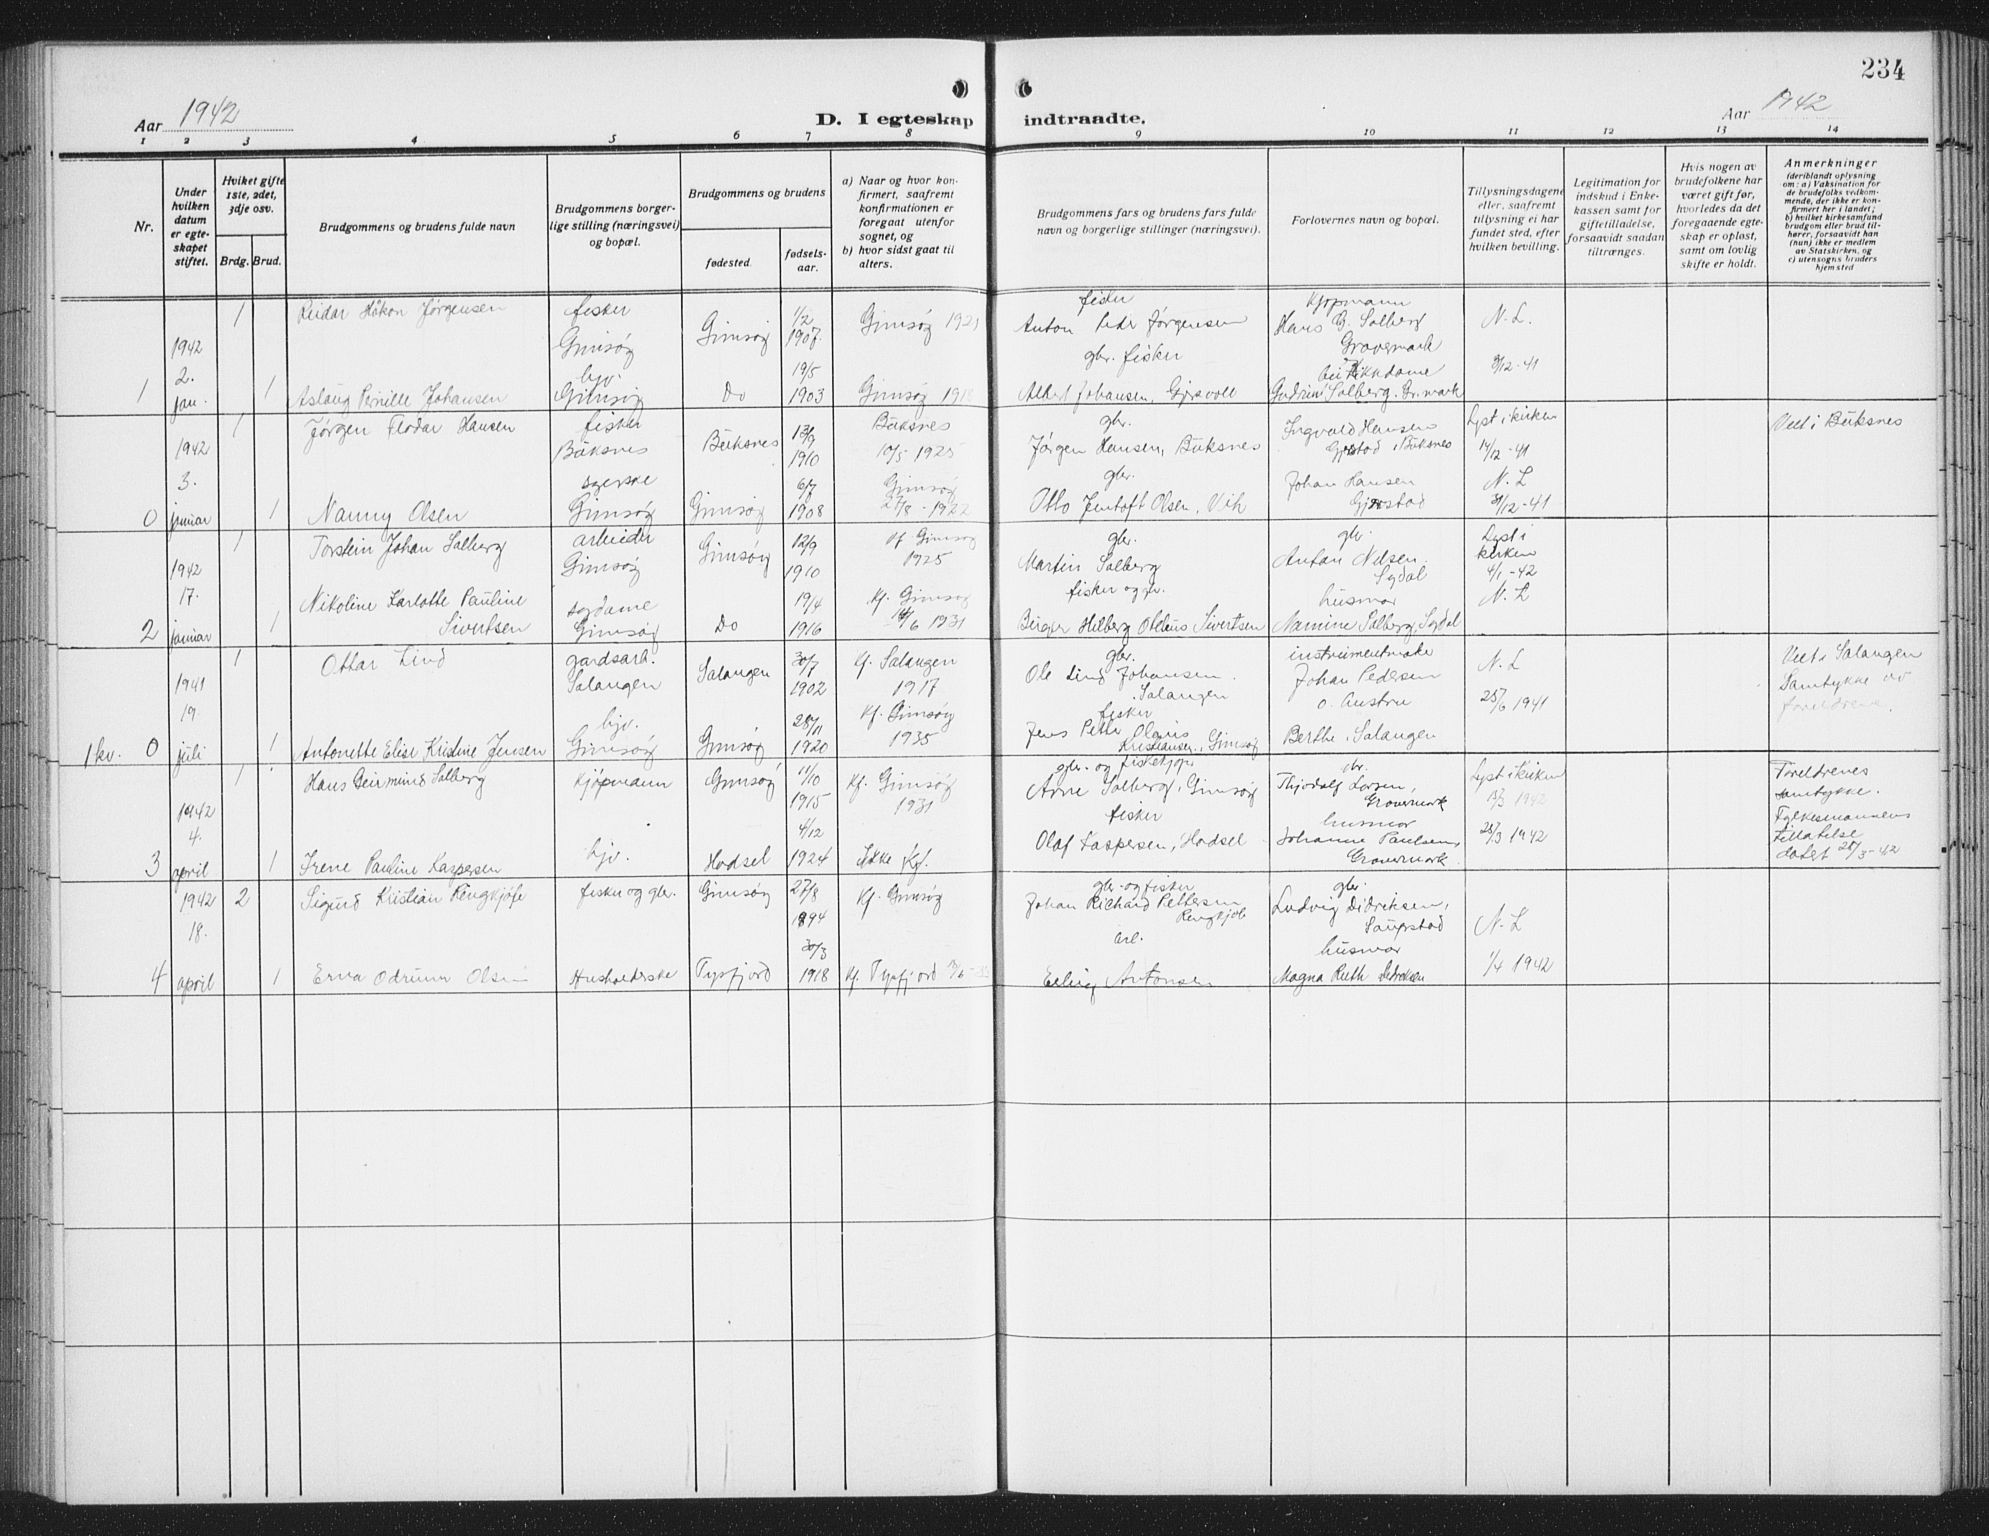 234
Aar 1942
D. I egteskap indtraadte.
Aar 1942
1 2 3 4 5 6 7 8 9 10 11 12 13 14
Nr.
Under hvilken datum er egteskapet stiftet.
Hviket gifte 1ste, 2det, 3dje osv.
Brdg. Brud.
Brudgommens og brudens fulde navn
Brudgommens borgerlige stilling (næringsvei) og bopæl.
Brudgommens og brudens
fødested.
fødselsaar.
a) Naar og hvor konfirmert, saafremt konfirmationen er foregaat utenfor sognet, og
b) hvor sidst gaat til alters.
Brudgommens fars og brudens fars fulde navn og borgerlige stillinger (næringsvei).
Forlovernes navn og bopæl.
Tillysningsdagene eller, saafremt tillysning ei har fundet sted, efter hvilken bevilling.
Legitimation for indskud i Enkekassen samt for giftetilladelse, forsaavidt saadan tiltrænges.
Hvis nogen av brudefolkene har været gift før, hvorledes da det foregaaende egteskap er opløst, samt om lovlig skifte er holdt.
Anmerkninger
(deriblandt oplysning om: a) Vaksination for de brudefolks vedkommende, der ikke er konfirmert her i landet; b) hvilket kirkesamfund brudgom eller brud tilhører, forsaavidt han (hun) ikke er medlem av Statskirken, og c) utensogns bruders hjemsted
1942 2. jan. 1 Reidar Håkon Jørgensen fisker Gimsøy Gimsøy 1/2 1907. Gimsøy 1921 fisker Anton Peder Jørgensen kjøpmann Hans G. Solberg Gravermark N.L.
1 1 Aslaug Pernille Johansen hjv. Gimsøy Do 19/5 1903 Gimsøy 1918 gbr. fisker Albert Johansen, Gjersvoll Gudrun Solberg. Gr.mark 9/12-41
1942 3. januar 1 Jørgen Flodar Hansen fisker Buksnes Buksnes 13/9 1910 Buksnes 10/5 1925 gbr. Jørgen Hansen, Buksnes Ingvald Hansen Gjerstad i Buksnes Lyst i kirken 14/12-41 Viet i Buksnes
0 1 Nanny Olsen syerske Gimsøy Gimsøy 6/7 1908 Gimsøy 27/8-1922 gbr. Otto Jentoft Olsen, Vik Johan Hansen Gjerstad N.L 31/12-41
1942 17. januar 1 Torstein Johan Solberg arbeider Gimsøy Gimsøy 12/9 1910 Kf Gimsøy 1925 gbr. Martin Solberg gbr. Anton Nilsen Sydal Lyst i kirken 4/1-42
2 1 Nikoline Karlotte Pauline Sivertsen sydame Gimsøy Do 19/4 1916 Kf. Gimsøy 14/6 1931 fisker og gbr. Birger Hilberg Oteliius Sivertsen husmor Namine Solberg, Sydal N.L
1941 19. juli 1 Ottar Lind gardsarb. Salangen Salangen 30/7 1902 Kf. Salangen 1917 gbr. Ole Lind Johansen. Salangen instrumentmaker Johan Pedersen N.L 25/6 1941 Viet i Salangen Samtykke av foreldrene.
1 kv. 0 1 Antonette Elise Kristine Jensen hjv. Gimsøy Gimsøy 28/11 1920 Kf. Gimsøy 1935 fisker Jens Petter Olaus Kristiansen, Gimsøy o. hustru Berthe, Salangen
1942 4. april 1 Hans Geirmund Solberg kjøpmann Gimsøy 11/10 1915 Kf. Gimsøy 1931 gbr. og fiskekjøper Arne Solberg, Gimsøy gbr. Thjodolf Larsen, Gravermark Lyst i kirken 15/3 1942 Foreldrenes samtykke. Fylkesmannens tillatelse datet 28/3-42
3 1 Irene Pauline Kaspersen hjv. Hadsel 4/12 1924 Ikke Kf. fisker Olaf Kaspersen, Hadsel husmor Johanne Paulsen, Gravermark. 28/3 1942
1942 18. april 2 Sigurd Kristian Rengkjøb fisker og gbr. Gimsøy 27/8 1894 Kf. Gimsøy gbr. og fisker Johan Richard Pettersen Rengkjøb gbr. Ludvig Didriksen, Saupstad N.L
4 1 Erna Odrunn Olsen Husholderske Tysfjord 30/3 1918 Kf. Tysfjord arb. Erling Antonsen husmor Magna Ruth Didriksen 1/4 1942